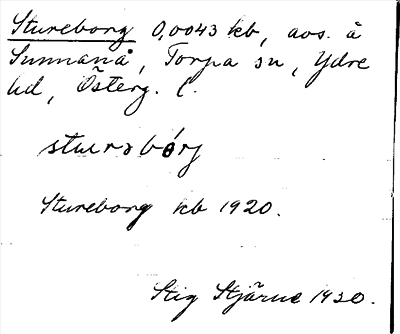 Stureborg 0,0043 kb, avs. å
Sunnanå, Torpa sn, Ydre
hd, Österg. l.
sturəbórj
Stureborg kb 1920.
Stig Stjärne 1930.